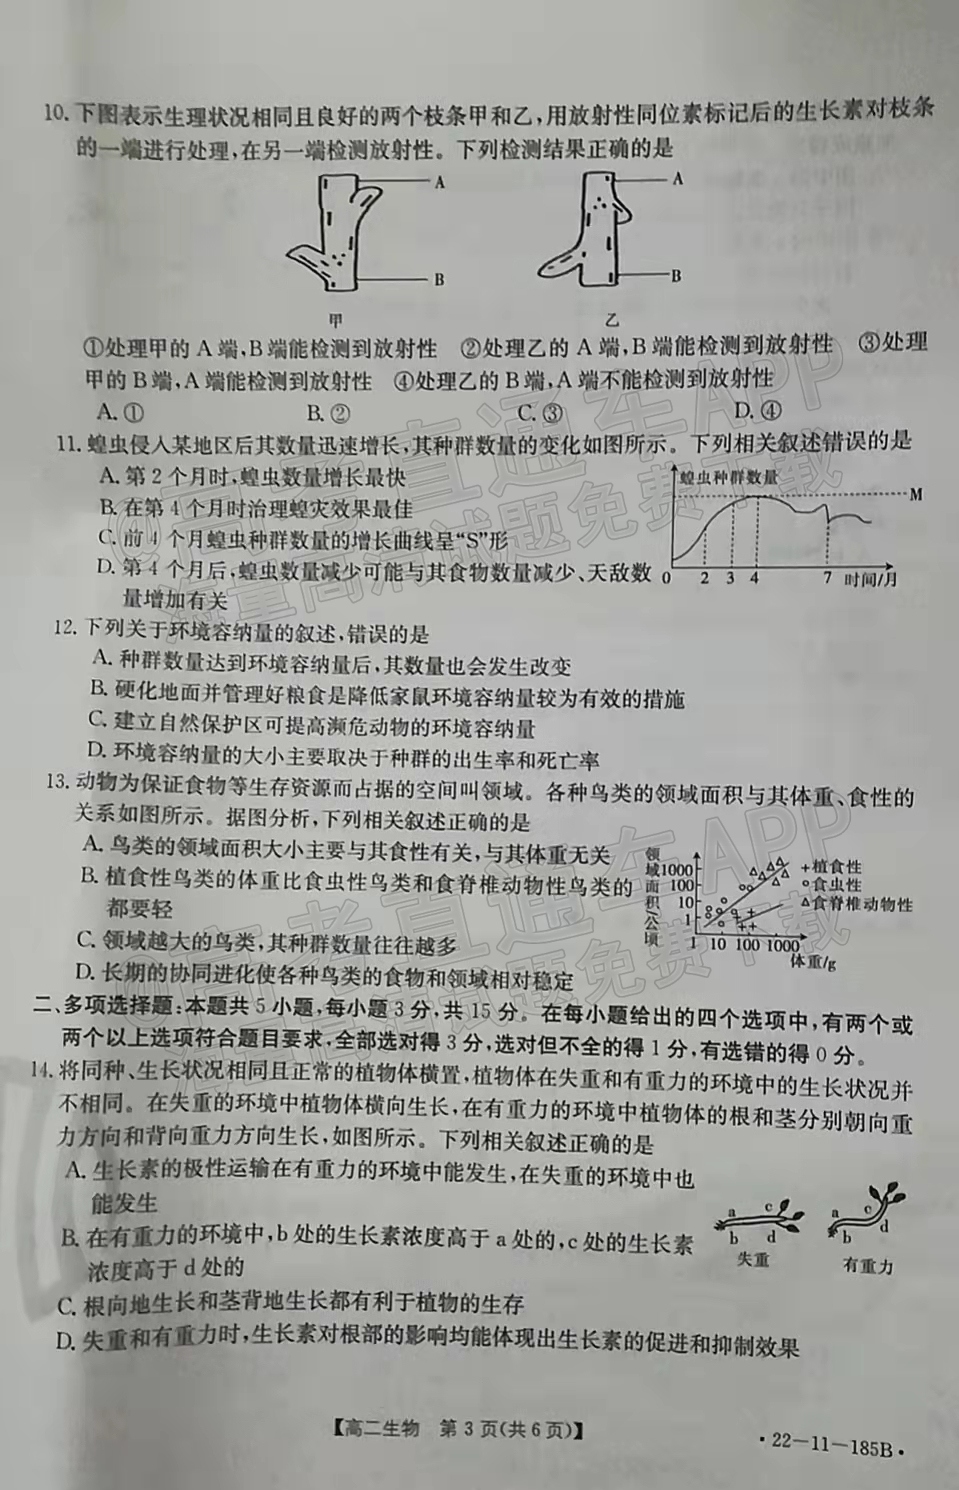 10. 下图表示生理状况相同且良好的两个枝条甲和乙,用放射性同位素标记后的生长素对枝条
的一端进行处理,在另一端检测放射性。下列检测结果正确的是
A
B
甲
A
B
乙
①处理甲的 A 端,B 端能检测到放射性 ②处理乙的 A 端,B 端能检测到放射性 ③处理
甲的 B 端,A 端能检测到放射性 ④处理乙的 B 端,A 端不能检测到放射性
A. ① B. ② C. ③ D. ④
11. 蝗虫侵入某地区后其数量迅速增长,其种群数量的变化如图所示。下列相关叙述错误的是
A. 第 2 个月时,蝗虫数量增长最快
B. 在第 4 个月时治理蝗灾效果最佳
C. 前 4 个月蝗虫种群数量的增长曲线呈“S”形
D. 第 4 个月后,蝗虫数量减少可能与其食物数量减少、天敌数
量增加有关
蝗虫种群数量
M
0 2 3 4 7 时间/月
12. 下列关于环境容纳量的叙述,错误的是
A. 种群数量达到环境容纳量后,其数量也会发生改变
B. 硬化地面并管理好粮食是降低家鼠环境容纳量较为有效的措施
C. 建立自然保护区可提高濒危动物的环境容纳量
D. 环境容纳量的大小主要取决于种群的出生率和死亡率
13. 动物为保证食物等生存资源而占据的空间叫领域。各种鸟类的领域面积与其体重、食性的
关系如图所示。据图分析,下列相关叙述正确的是
A. 鸟类的领域面积大小主要与其食性有关,与其体重无关
B. 植食性鸟类的体重比食虫性鸟类和食脊椎动物性鸟类的
都要轻
C. 领域越大的鸟类,其种群数量往往越多
D. 长期的协同进化使各种鸟类的食物和领域相对稳定
领域面积/公顷
1000
100
10
1
1 10 100 1000
体重/g
+植食性
○食虫性
△食脊椎动物性
二、多项选择题:本题共 5 小题,每小题 3 分,共 15 分。在每小题给出的四个选项中,有两个或
两个以上选项符合题目要求,全部选对得 3 分,选对但不全的得 1 分,有选错的得 0 分。
14. 将同种、生长状况相同且正常的植物体横置,植物体在失重和有重力的环境中的生长状况并
不相同。在失重的环境中植物体横向生长,在有重力的环境中植物体的根和茎分别朝向重
力方向和背向重力方向生长,如图所示。下列相关叙述正确的是
A. 生长素的极性运输在有重力的环境中能发生,在失重的环境中也
能发生
B. 在有重力的环境中,b 处的生长素浓度高于 a 处的,c 处的生长素
浓度高于 d 处的
C. 根向地生长和茎背地生长都有利于植物的生存
D. 失重和有重力时,生长素对根部的影响均能体现出生长素的促进和抑制效果
a c
b d
失重
a c
b d
有重力
【高二生物 第 3 页(共 6 页)】
·22-11-185B·
@高考直通车APP
海量高清试题免费下载
@高考直通车APP
海量高清试题免费下载